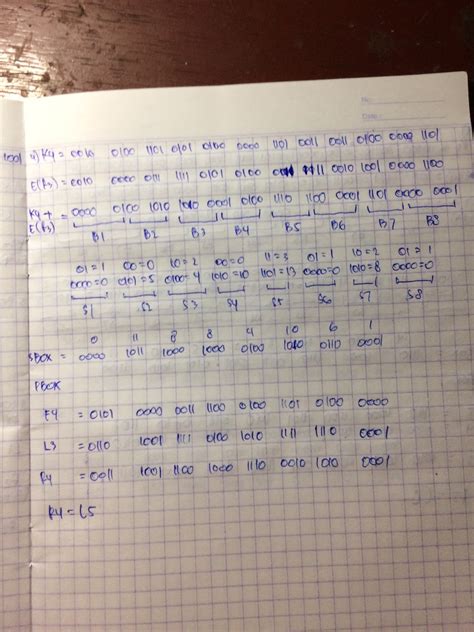 No.
Date
1001 4) K4 = 0010 0100 1101 0101 0100 0000 1101 0011 0011 0100 0000 1101
E(R3) = 0010 0000 0111 1111 0101 0100 0011 1111 0010 1001 0000 1100
K4 + E(R3) = 0000 0100 1010 1010 0001 0100 1110 1100 0001 1101 0000 0001
B1 B2 B3 B4 B5 B6 B7 B8
01 = 1 00 = 0 10 = 2 00 = 0 11 = 3 01 = 1 10 = 2 01 = 1
0000 = 0 0101 = 5 0100 = 4 1010 = 10 1101 = 13 0000 = 0 1010 = 8 0000 = 0
S1 S2 S3 S4 S5 S6 S7 S8
0 11 8 8 4 10 6 1
SBOX = 0000 1011 1000 1000 0100 1010 0110 0001
PBOX
F4 = 0101 0000 0011 1100 0100 1101 0100 0000
L3 = 0110 1001 1111 0100 1010 1111 1110 0001
R4 = 0011 1001 1100 1000 1110 0010 1010 0001
R4 = L5